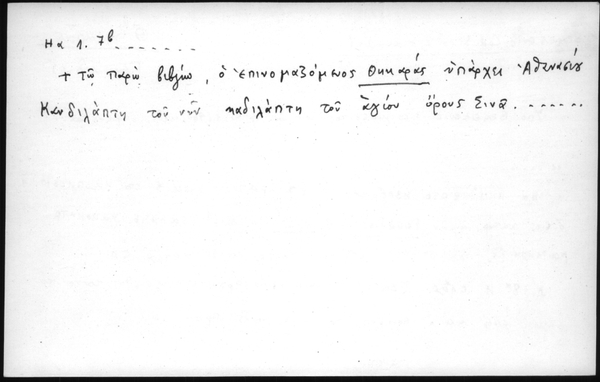 Ηα 1. 7b.......
+ τῶ παρῶ βιβλίω, ὁ ἐπινομαζόμενος Θηκαράς ὑπάρχει Ἀθανασίου
Κανδιλάπτη τοῦ νῦν καδιλάπτη τοῦ ἁγίου ὄρους Σινᾶ.......